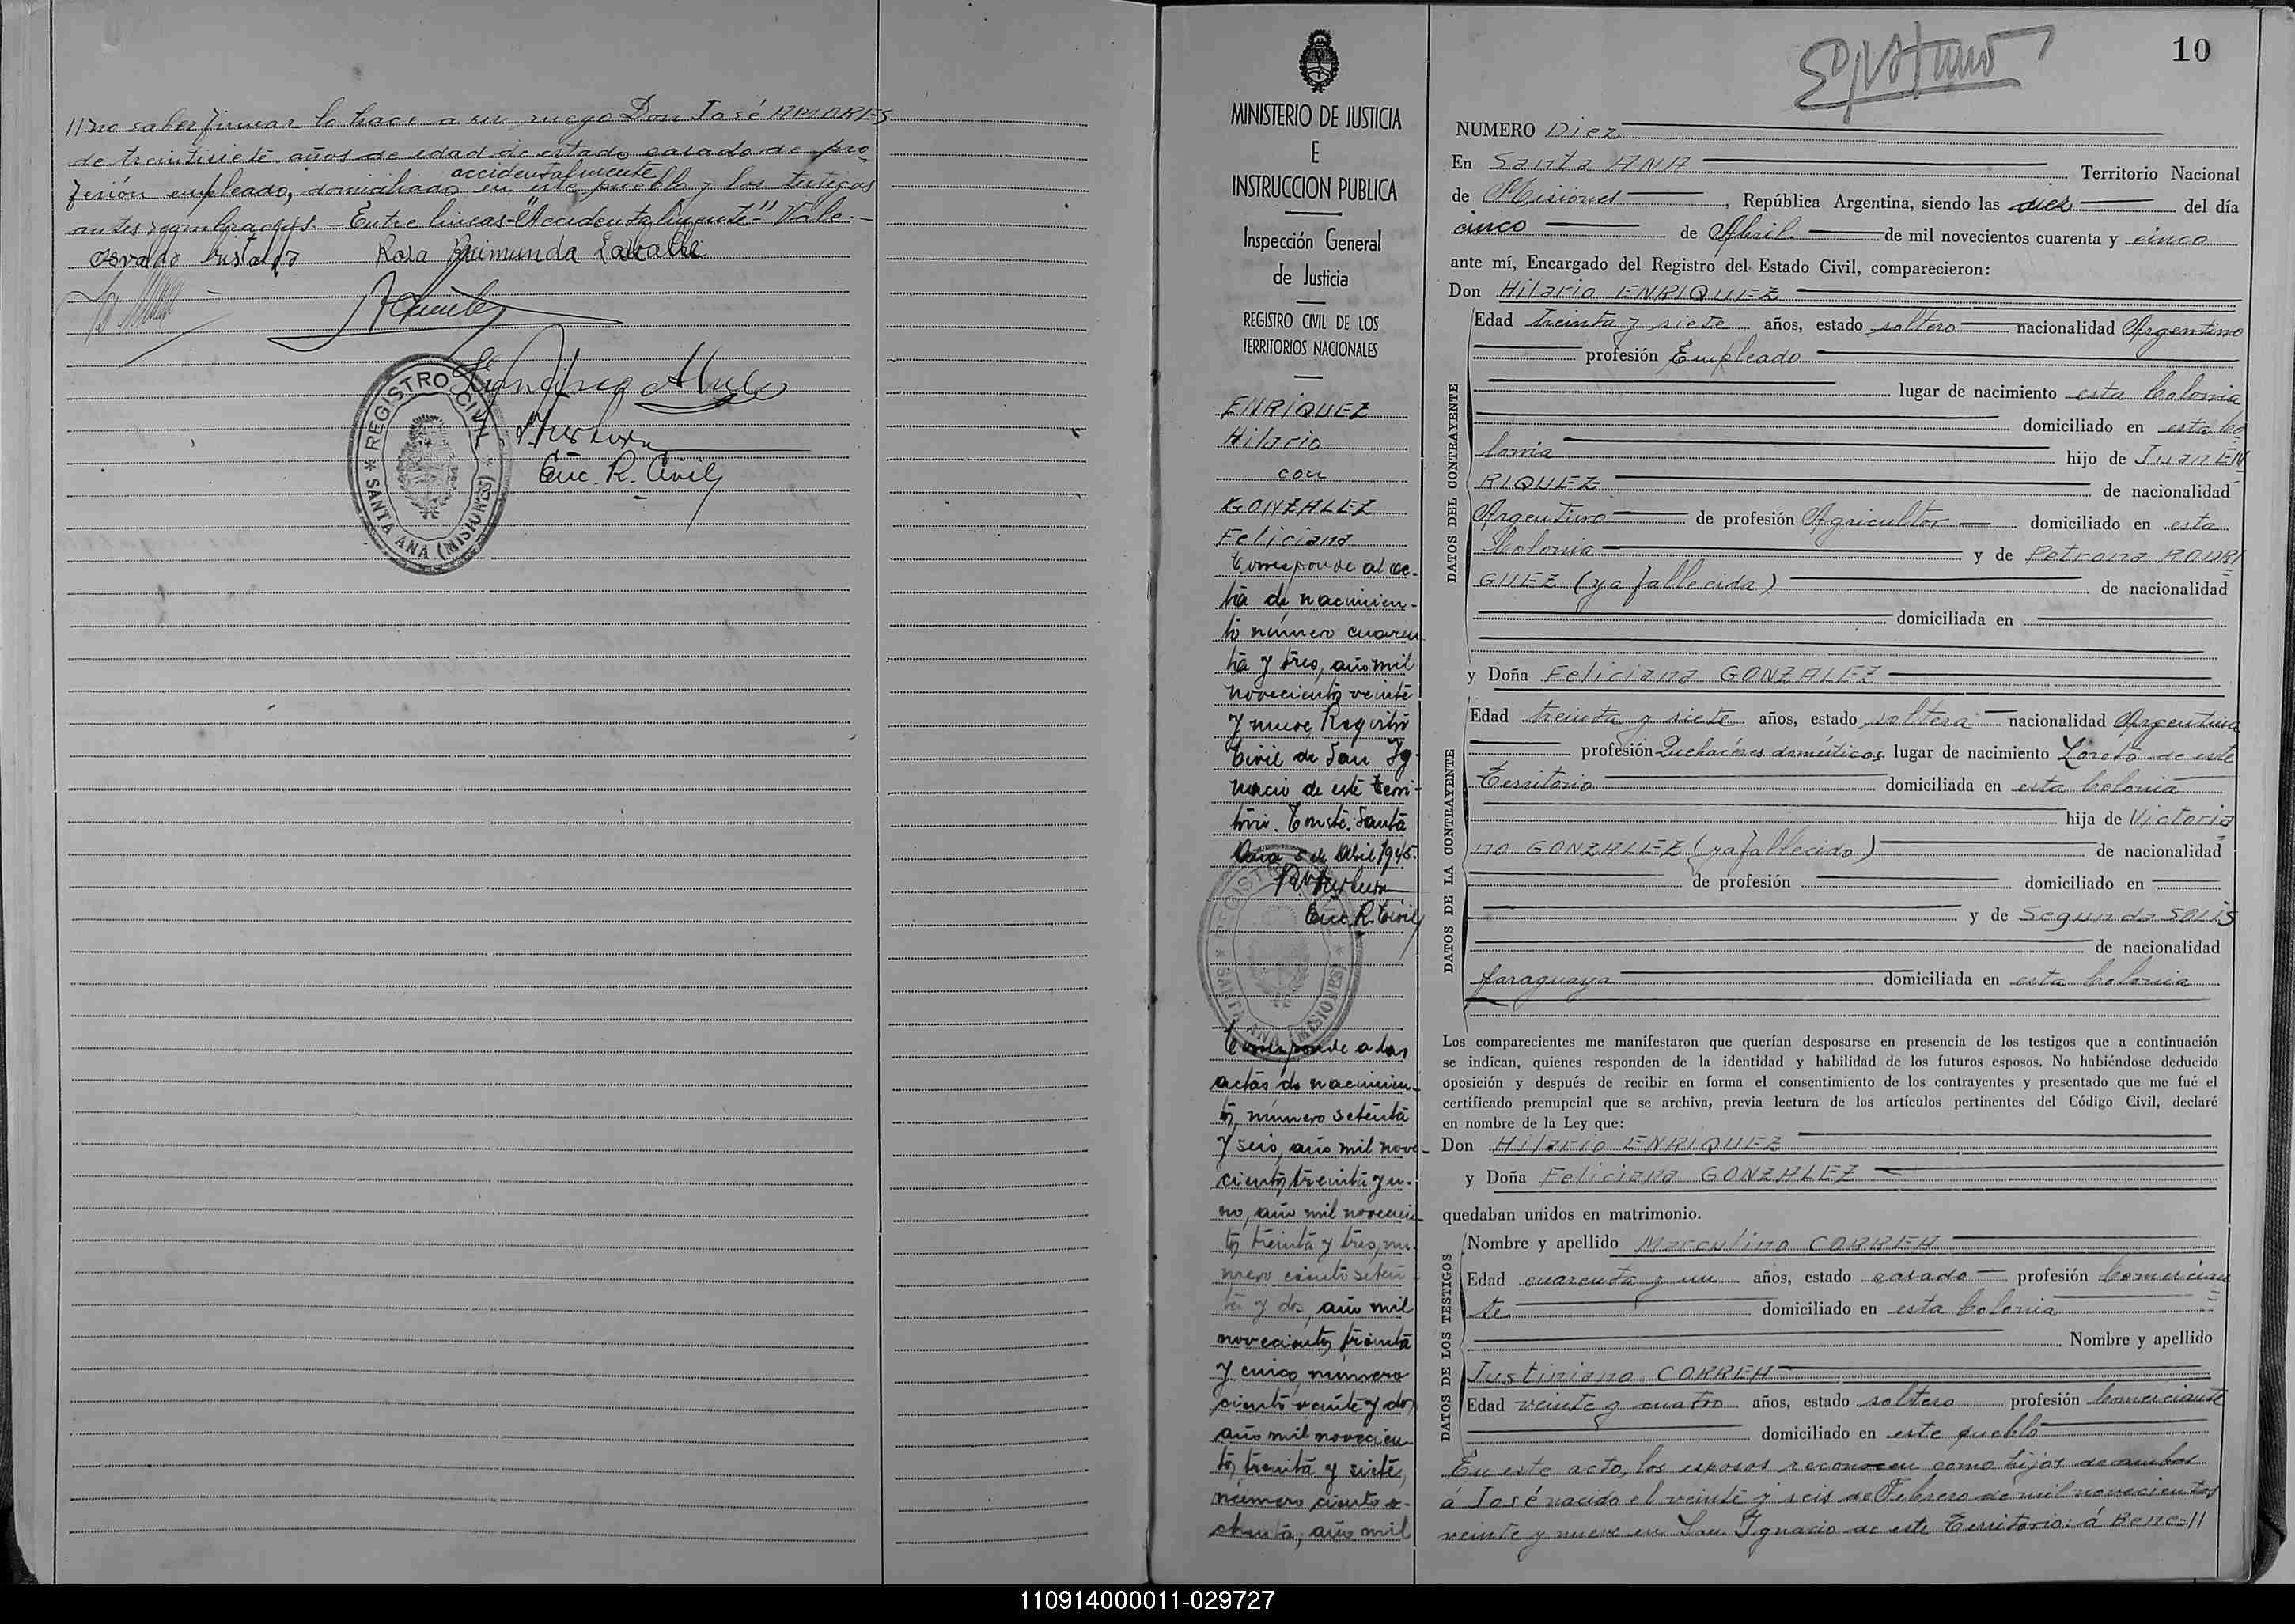 //no saber firmar lo hace a su ruego Don José
de treintisiete años de edad de estado casado de pro-
fesión empleado, domiciliado accidentalmente en este pueblo y los testigos
antes nombrados.- Entre lineas-"Accidentalmente" Vale.-
Rosa Raimunda
REGISTRO CIVIL
* SANTA ANA (MISIONES) *
Enc. R. Civil
MINISTERIO DE JUSTICIA
E
INSTRUCCION PUBLICA
Inspección General
de Justicia
REGISTRO CIVIL DE LOS
TERRITORIOS NACIONALES
ENRIQUEZ
Hilario
con
GONZALEZ
Feliciana
Corresponde al ac-
ta de nacimien-
to número cuaren
ta y tres, año mil
novecientos veinte
y nueve Registro
Civil de San Ig-
nacio de este terri-
torio. Conste. Santa
Ana 5 de Abril 1945.
Enc. R. Civil
REGISTRO CIVIL
* SANTA ANA (MISIONES) *
Corresponde a las
actas de nacimien-
to, número setenta
y seis, año mil nove-
cientos treinta y u-
no, año mil novecien-
tos treinta y tres, nú-
mero ciento seten-
ta y dos, año mil
novecientos treinta
y cinco, número
ciento veinte y dos,
año mil novecien-
tos treinta y siete,
número ciento o-
chenta, año mil
10
NUMERO Diez
En Santa ANA Territorio Nacional
de Misiones, República Argentina, siendo las diez del día
cinco de Abril. de mil novecientos cuarenta y cinco
ante mí, Encargado del Registro del Estado Civil, comparecieron:
Don Hilario ENRIQUEZ
DATOS DEL CONTRAYENTE
Edad treinta y siete años, estado soltero nacionalidad Argentino
profesión Empleado
lugar de nacimiento esta Colonia
domiciliado en esta Co
lonia hijo de Juan EN
RIQUEZ de nacionalidad
Argentino de profesión Agricultor domiciliado en esta
Colonia y de Petrona RODRI
GUEZ (ya fallecida) de nacionalidad
domiciliada en
y Doña Feliciana GONZALEZ
DATOS DE LA CONTRAYENTE
Edad treinta y siete años, estado soltera nacionalidad Argentina
profesión Quehaceres domésticos lugar de nacimiento Loreto de este
Territorio domiciliada en esta Colonia
hija de Victoria
no GONZALEZ (ya fallecido) de nacionalidad
de profesión domiciliado en
y de Segunda SOLIS
de nacionalidad
paraguaya domiciliada en esta Colonia
Los comparecientes me manifestaron que querían desposarse en presencia de los testigos que a continuación
se indican, quienes responden de la identidad y habilidad de los futuros esposos. No habiéndose deducido
oposición y después de recibir en forma el consentimiento de los contrayentes y presentado que me fué el
certificado prenupcial que se archiva, previa lectura de los artículos pertinentes del Código Civil, declaré
en nombre de la Ley que:
Don Hilario ENRIQUEZ
y Doña Feliciana GONZALEZ
quedaban unidos en matrimonio.
DATOS DE LOS TESTIGOS
Nombre y apellido Marculino CORREA
Edad cuarenta y un años, estado casado profesión Comercian
te domiciliado en esta Colonia
Nombre y apellido
Justiniano CORREA
Edad veinte y cuatro años, estado soltero profesión Comerciante
domiciliado en este pueblo
En este acto, los esposos reconocen como hijos de ambos
á José nacido el veinte y seis de Febrero de mil novecientos
veinte y nueve en San Ignacio de este Territorio: á Rene-//
110914000011-029727